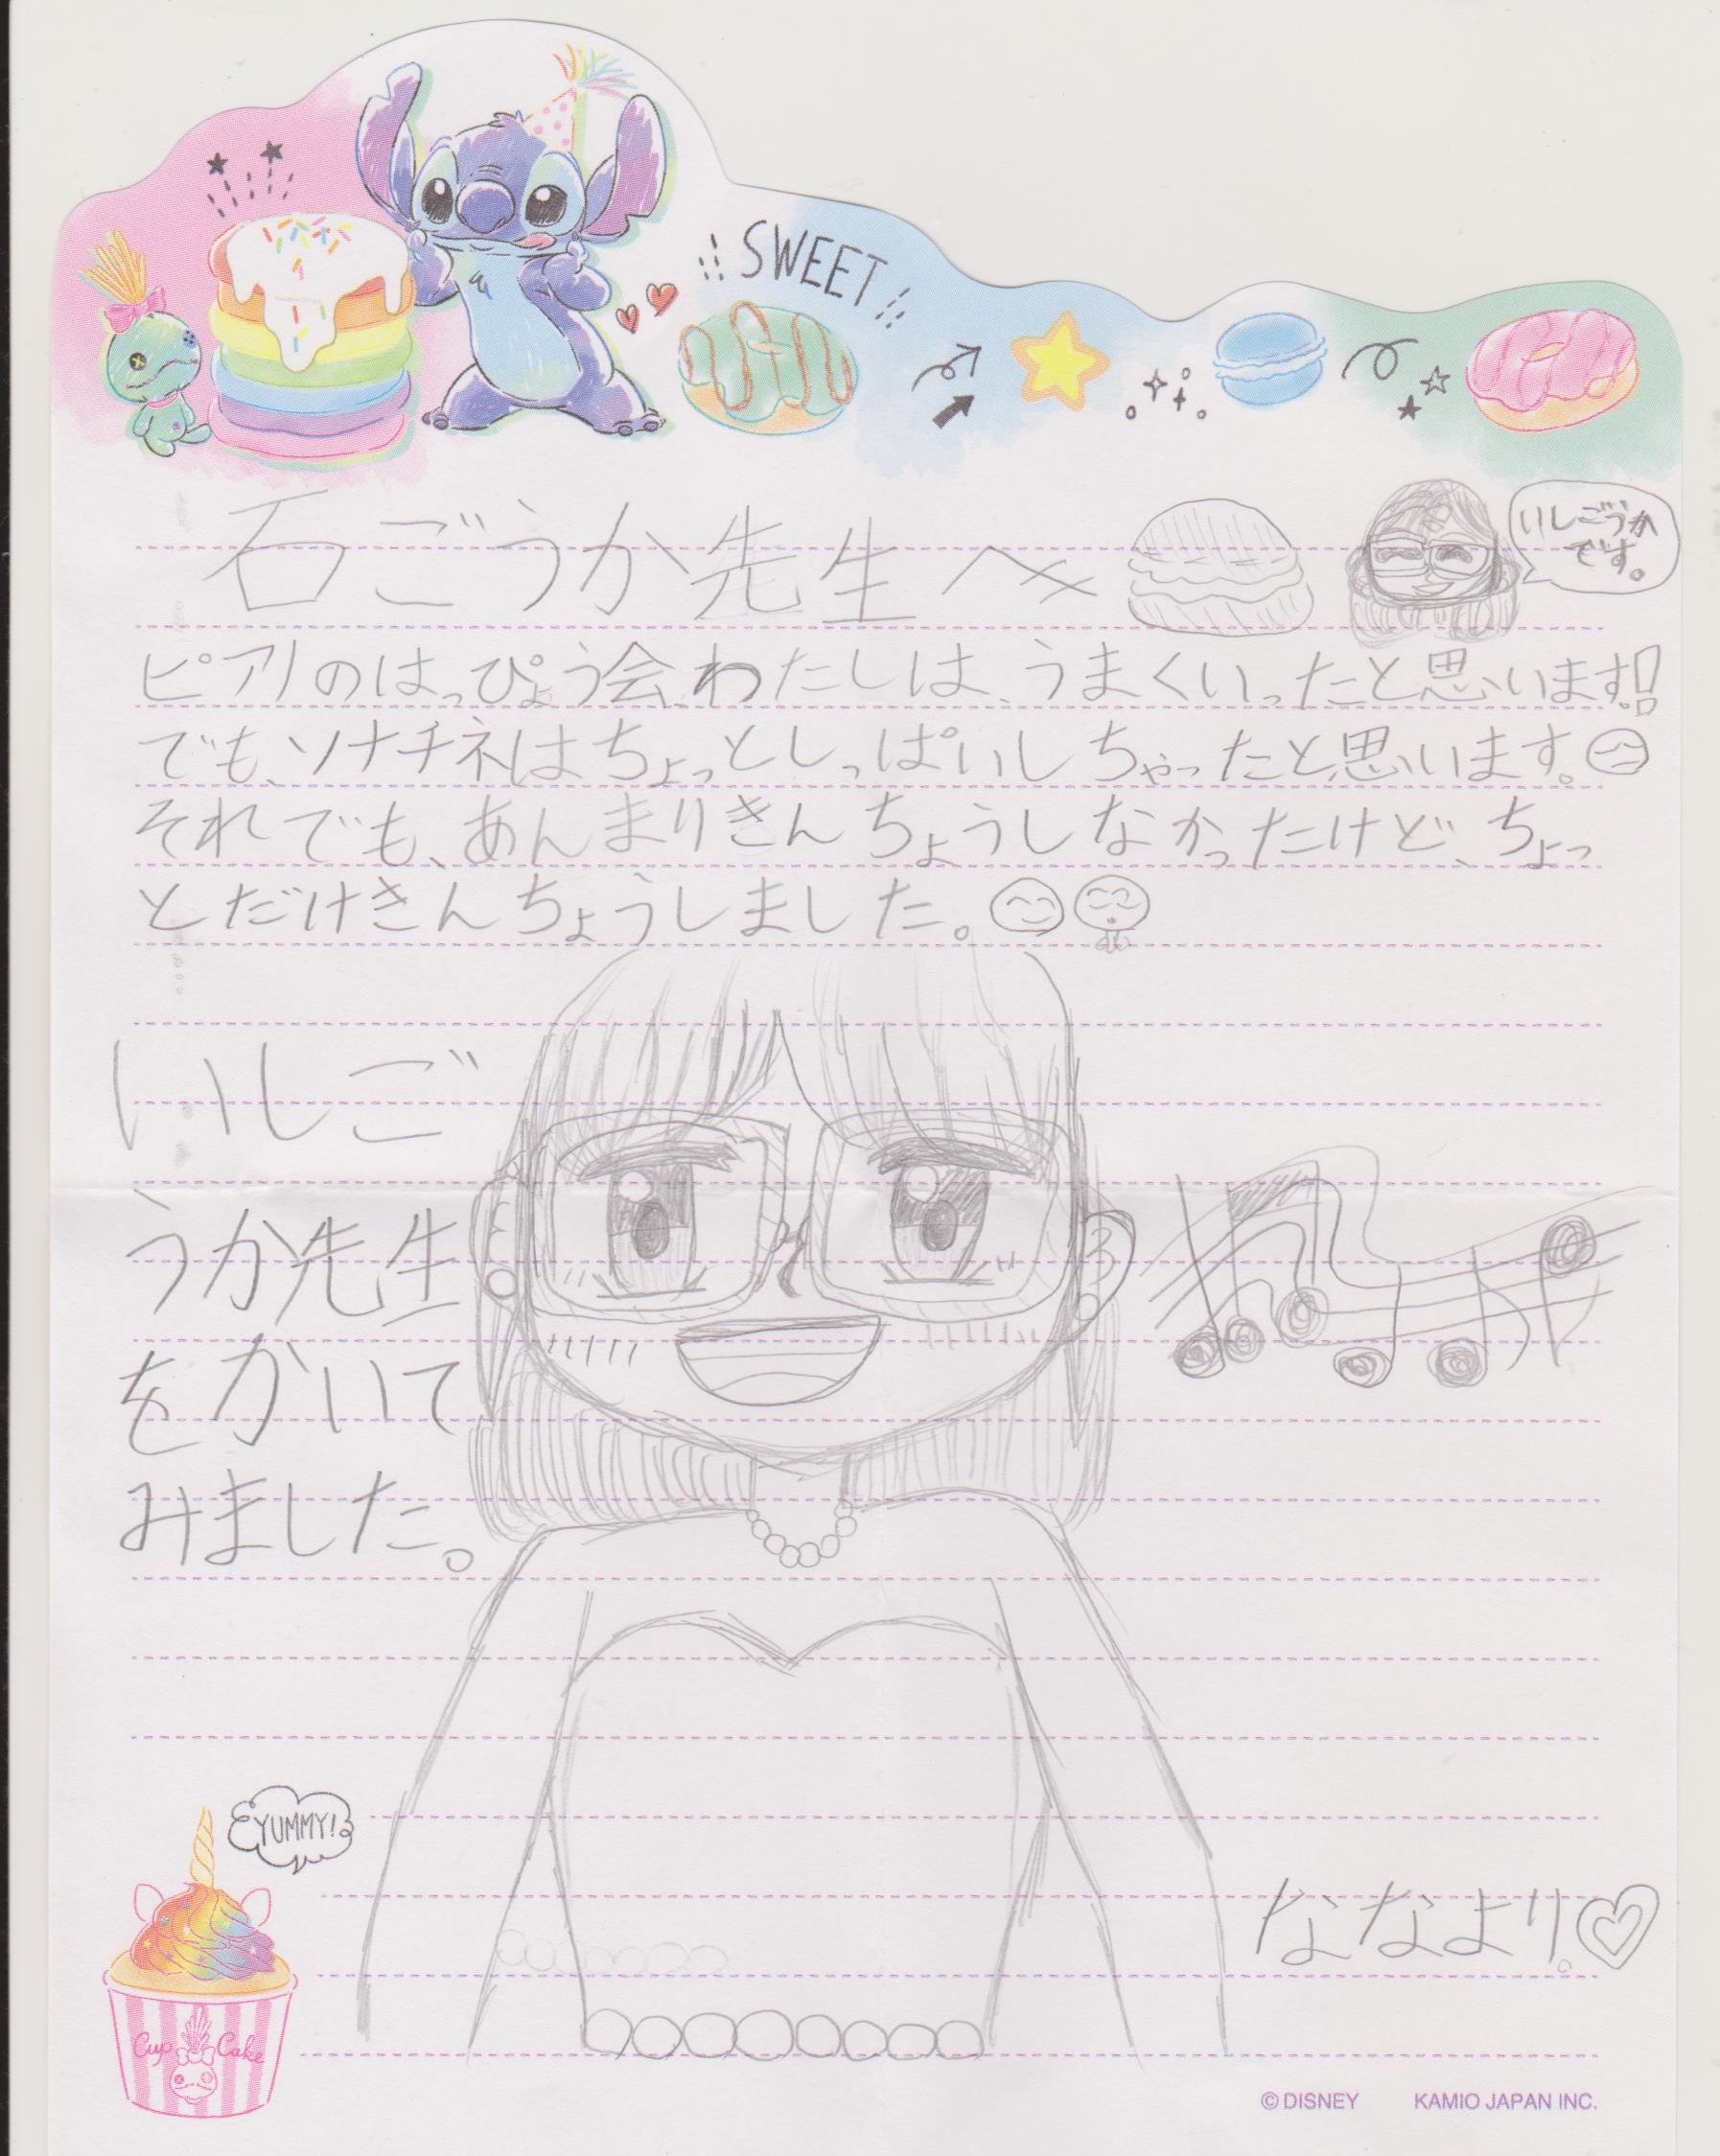 SWEET
石ごうか先生へ
いしごうか
です。
ピアノのはっぴょう会、わたしは、うまくいったと思います!!
でも、ソナチネはちょっとしっぱいしちゃったと思います。
それでも、あんまりきんちょうしなかったけど、ちょっ
とだけきんちょうしました。
いしご
うか先生
をかいて
みました。
YUMMY!
Cup Cake
ななより。
© DISNEY KAMIO JAPAN INC.